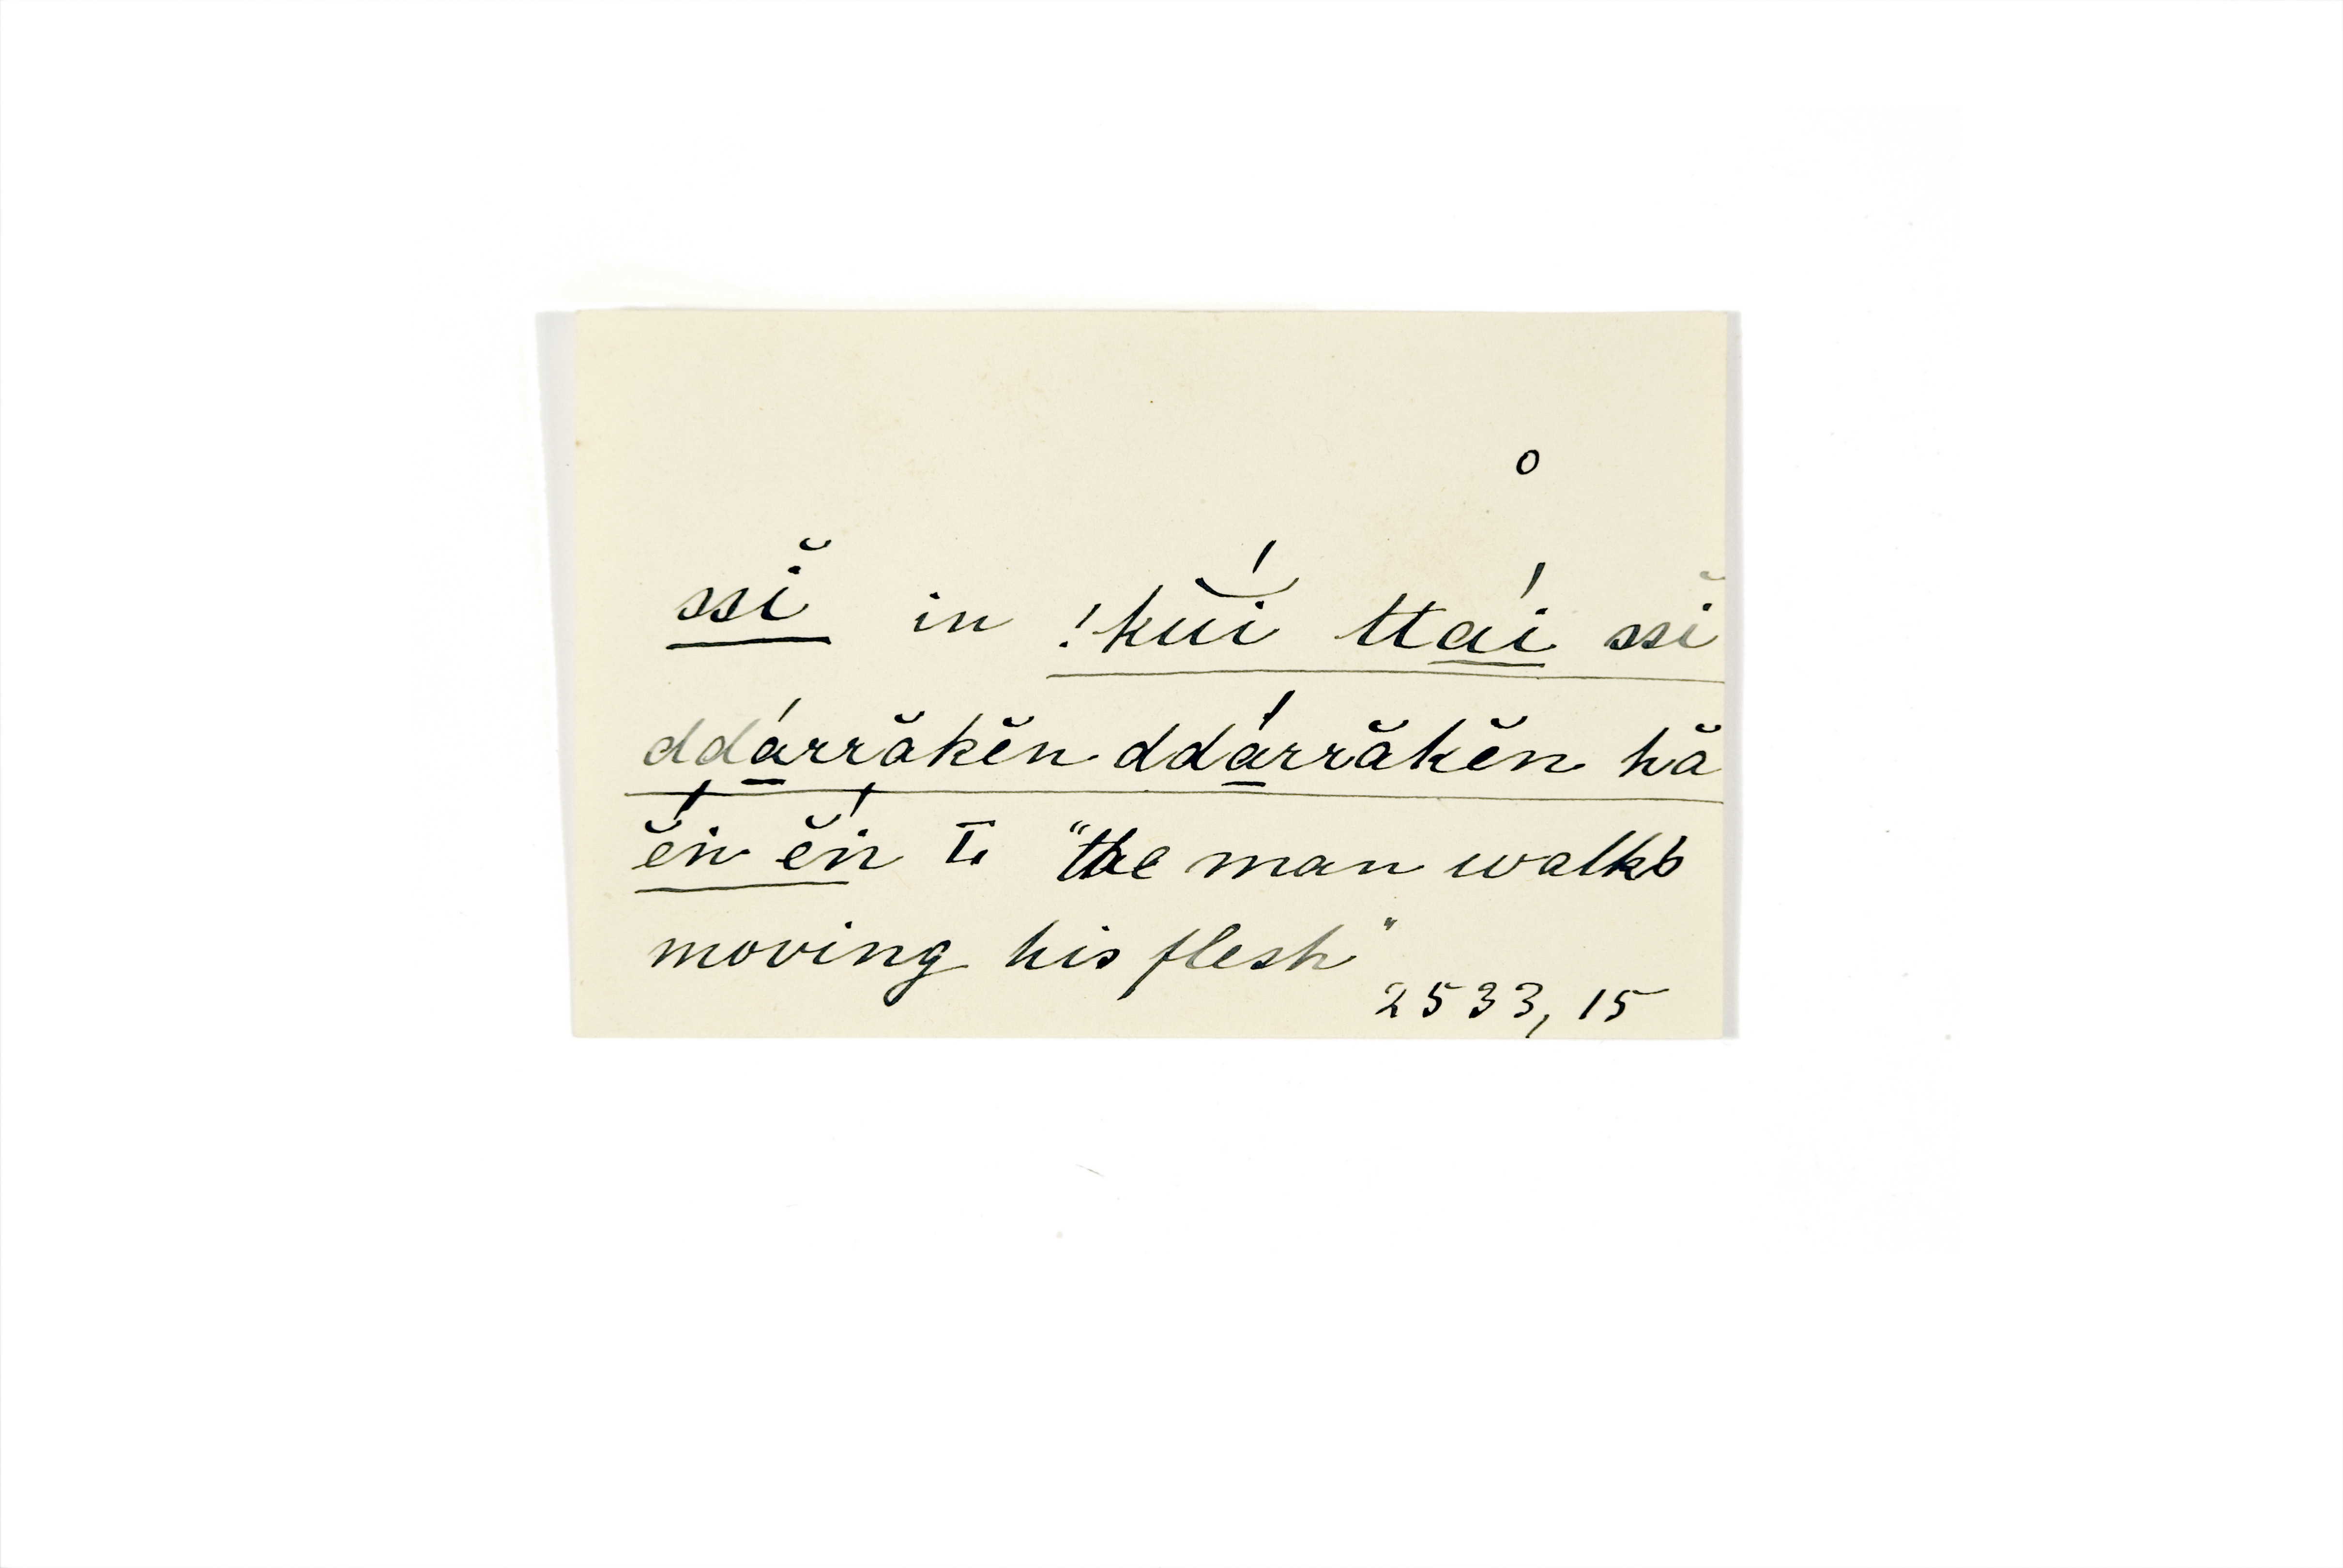 o
ssĭ in !kúĭ ttái ssĭ
ddárrăkĕn ddárrăkĕn hă
ĕ́n ĕ́n "the man walks
moving his flesh"
2533, 15